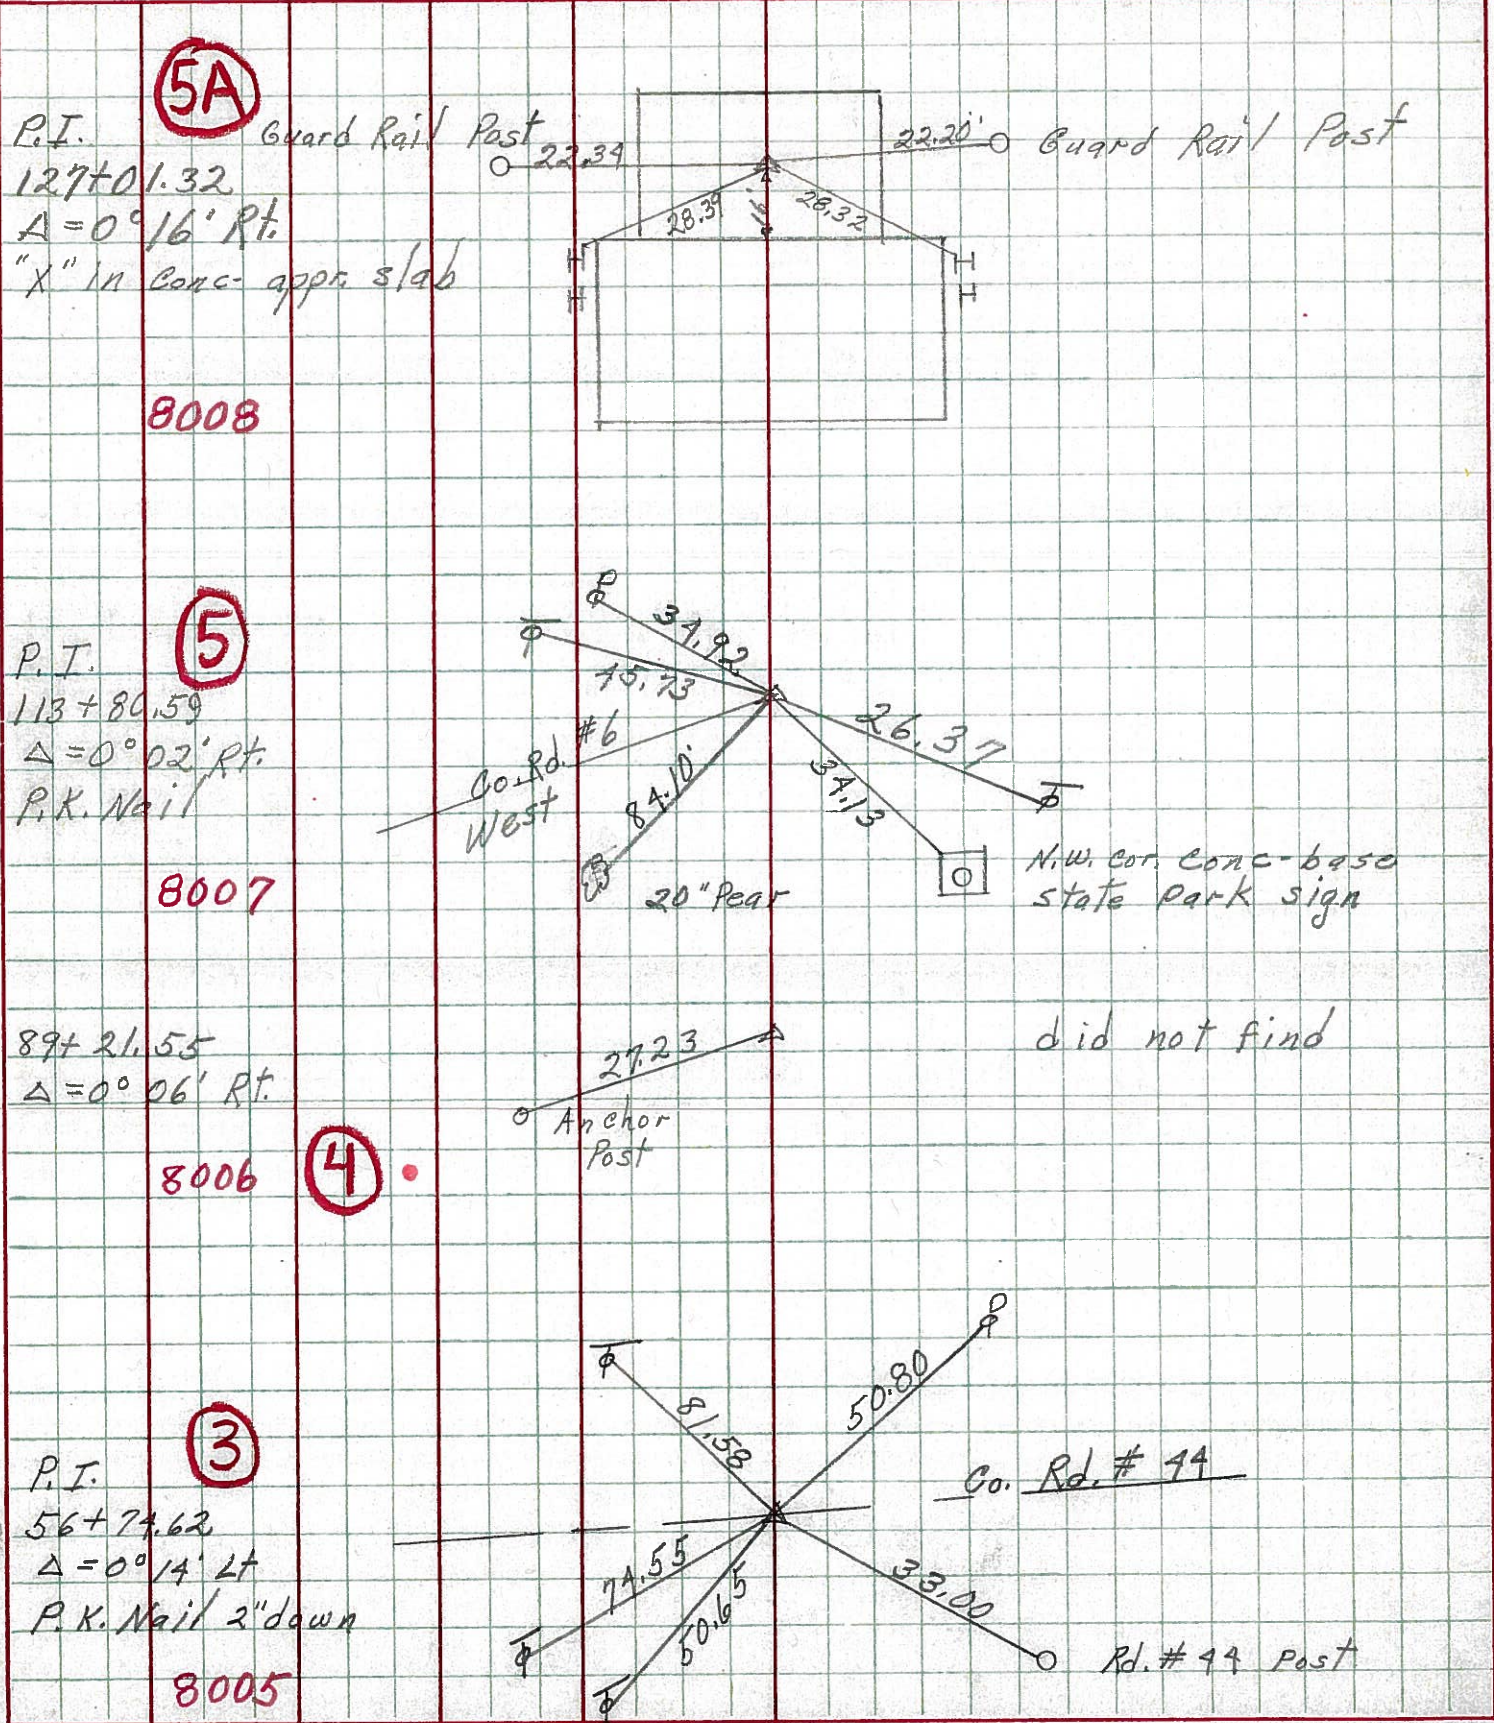 5A
P.I.
127+01.32
Δ=0°16' Rt.
"X" in Conc- appr. slab
8008
Guard Rail Post
22.34
22.20'
Guard Rail Post
28.39
28.32
5
P.I.
113+80.59
Δ=0°02' Rt.
P.K. Nail
8007
34.92
45.73
Co. Rd. #6
West
84.10'
20" Pear
26.37
34.13
N.W. cor. conc-base
state park sign
89+21.55
Δ=0°06' Rt.
8006
4
27.23
Anchor
Post
did not find
3
P.I.
56+74.62
Δ=0°14' Lt
P.K. Nail 2" down
8005
81.58
50.80
Co. Rd. # 44
74.55
50.65
33.00
Rd. # 44 Post